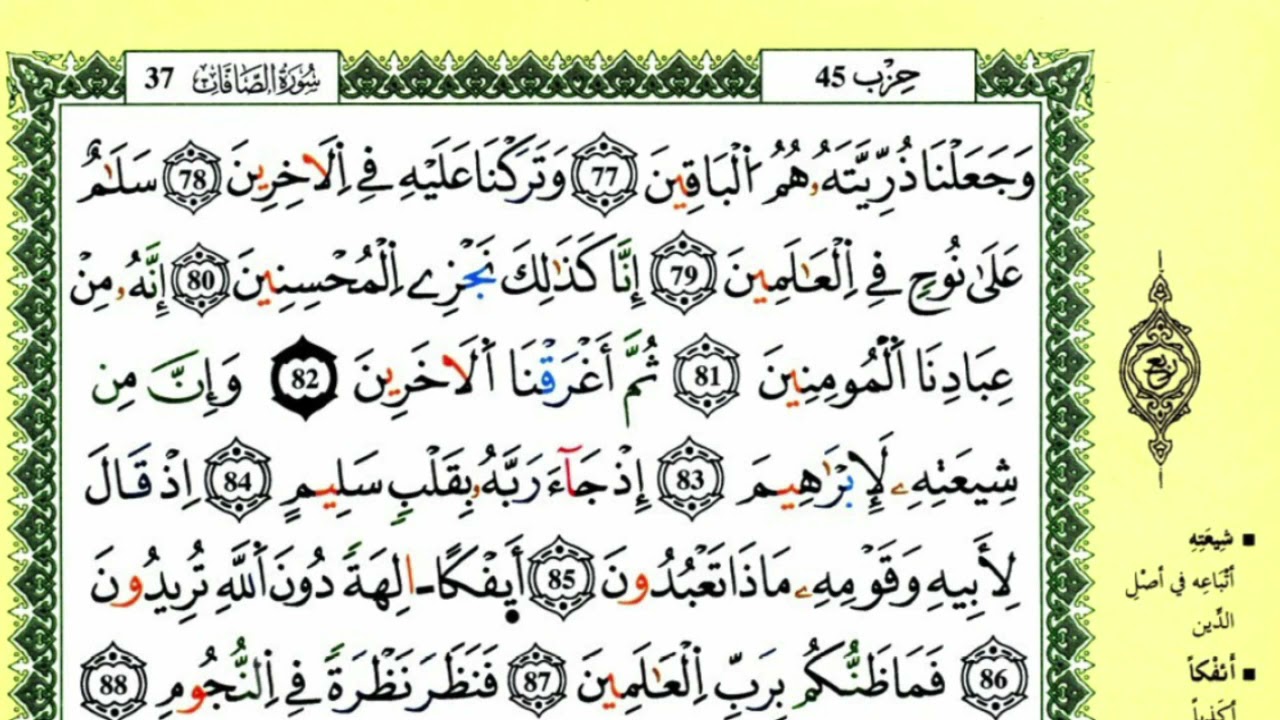 حِزْب 45
سُورَةُ الصَّافَّات 37
وَجَعَلْنَا ذُرِّيَّتَهُۥ هُمُ اُ۬لْبَاقِينَ 77 وَتَرَكْنَا عَلَيْهِ فِي اِ۬لَاخِرِينَ 78 سَلَٰمٌ
عَلَىٰ نُوحٖ فِي اِ۬لْعَٰلَمِينَ 79 إِنَّا كَذَٰلِكَ نَجْزِے اِ۬لْمُحْسِنِينَ 80 إِنَّهُۥ مِنْ
عِبَادِنَا اَ۬لْمُومِنِينَ 81 ثُمَّ أَغْرَقْنَا اَ۬لَاخَرِينَ 82 وَإِنَّ مِن
شِيعَتِهِۦ لَإِبْرَٰهِيمَ 83 إِذْ جَآءَ رَبَّهُۥ بِقَلْبٖ سَلِيمٍ 84 اِذْ قَالَ
لِأَبِيهِ وَقَوْمِهِۦ مَاذَا تَعْبُدُونَ 85 أَئِفْكاً ـ اٰلِهَةٗ دُونَ اَ۬للَّهِ تُرِيدُونَ
86 فَمَا ظَنُّكُم بِرَبِّ اِ۬لْعَٰلَمِينَ 87 فَنَظَرَ نَظْرَةٗ فِي اِ۬لنُّجُومِ 88
ربع
شِيعَتِهِ
أتْبَاعِه في أصْلِ
الدِّين
أَئفْكاً
أكَذِباً